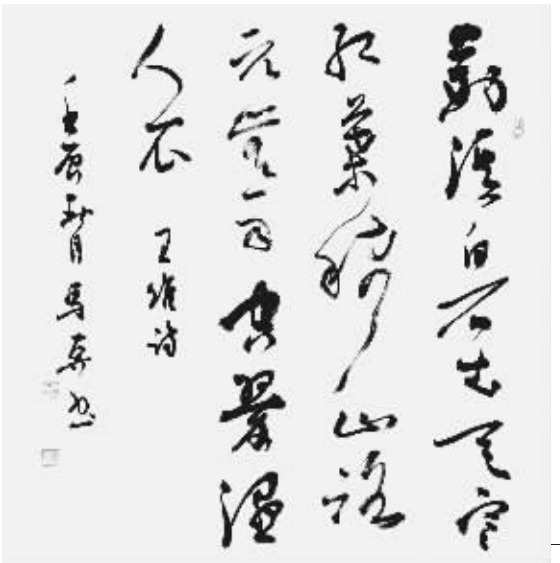 荆溪白石出天寒
红葉稀山路
元無雨空翠濕
人衣 王维诗
壬辰秋月马书